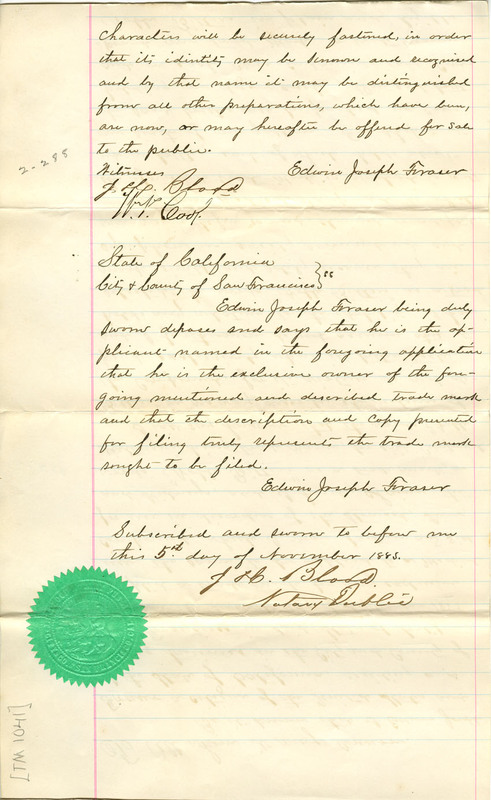 Characters will be securely fastened, in order
that its idintity may be known and recognised
and by that name it may be distinguished
from all other preparations, which have been,
are now, or may hereafter be offered for sale
to the public.
2-288
Witnesses Edwin Joseph Fraser
J. H. Blood
Wm. T. Cook
State of California
City & County of San Francisco } ss
Edwin Joseph Fraser being duly
sworn deposes and says that he is the ap-
plicant named in the foregoing application
that he is the exclusive owner of the fore-
going mentioned and described trade mark
and that the description and copy presented
for filing truly represents the trade mark
sought to be filed.
Edwin Joseph Fraser
Subscribed and sworn to before me
this 5th day of November 1883.
J. H. Blood.
Notary Public
[TM 1041]